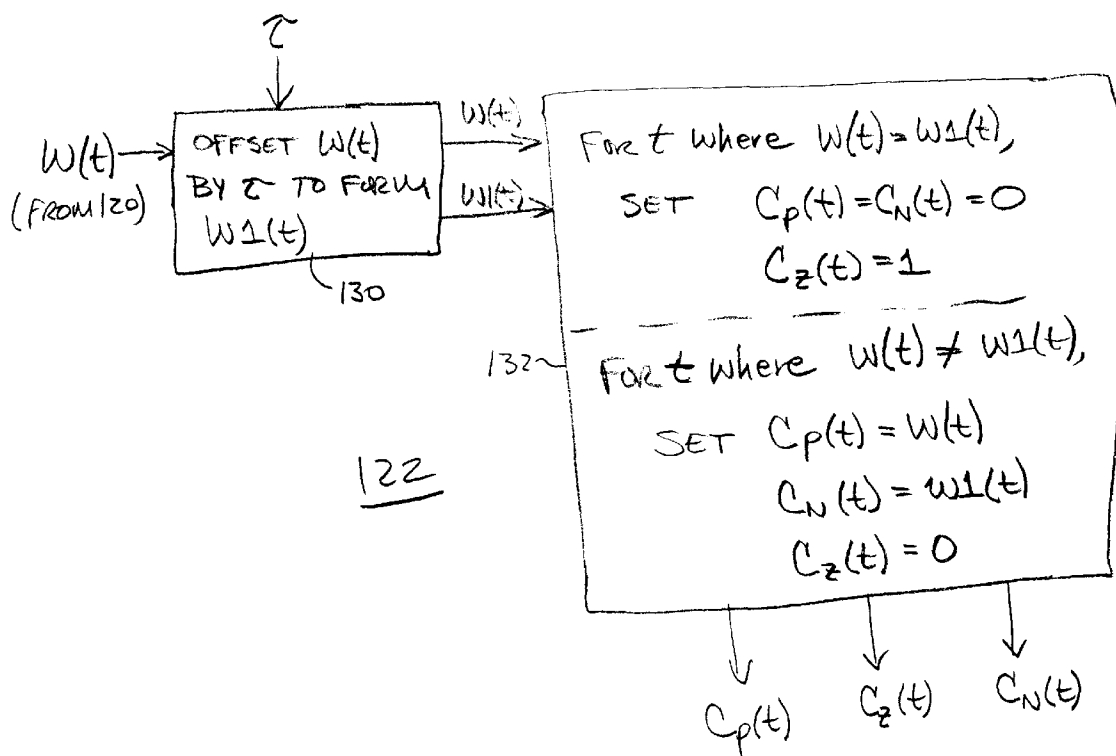 τ
W(t)
(FROM 120)
OFFSET W(t)
BY τ TO FORM
W1(t)
130
W(t)
W1(t)
For t where W(t) = W1(t),
SET Cp(t) = CN(t) = 0
Cz(t) = 1
132
For t where W(t) ≠ W1(t),
SET Cp(t) = W(t)
CN(t) = W1(t)
Cz(t) = 0
122
Cp(t) Cz(t) CN(t)